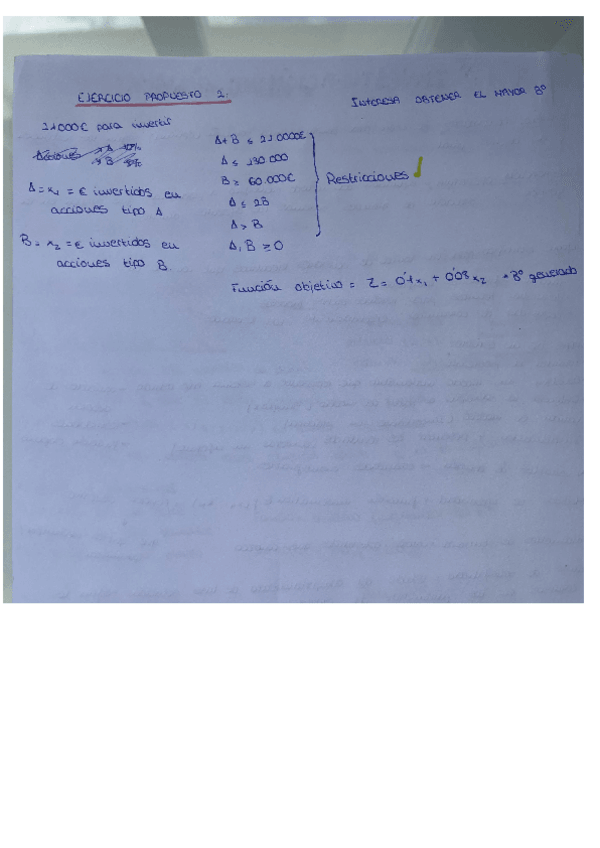 EJERCICIO PROPUESTO 2.
INTERESA OBTENER EL MAYOR Bº
para invertir
Acciones A 10%
B 8%
A = x₁ = € invertidos en
acciones tipo A
B = x₂ = € invertidos en
acciones tipo B.
A + B ≤ 210000€
A ≤ 130.000
B ≥ 60.000€
A ≤ 2B
A > B
A, B ≥ 0
Restricciones
Función objetivo = Z = 0'1x₁ + 0'08x₂ → Bº generado